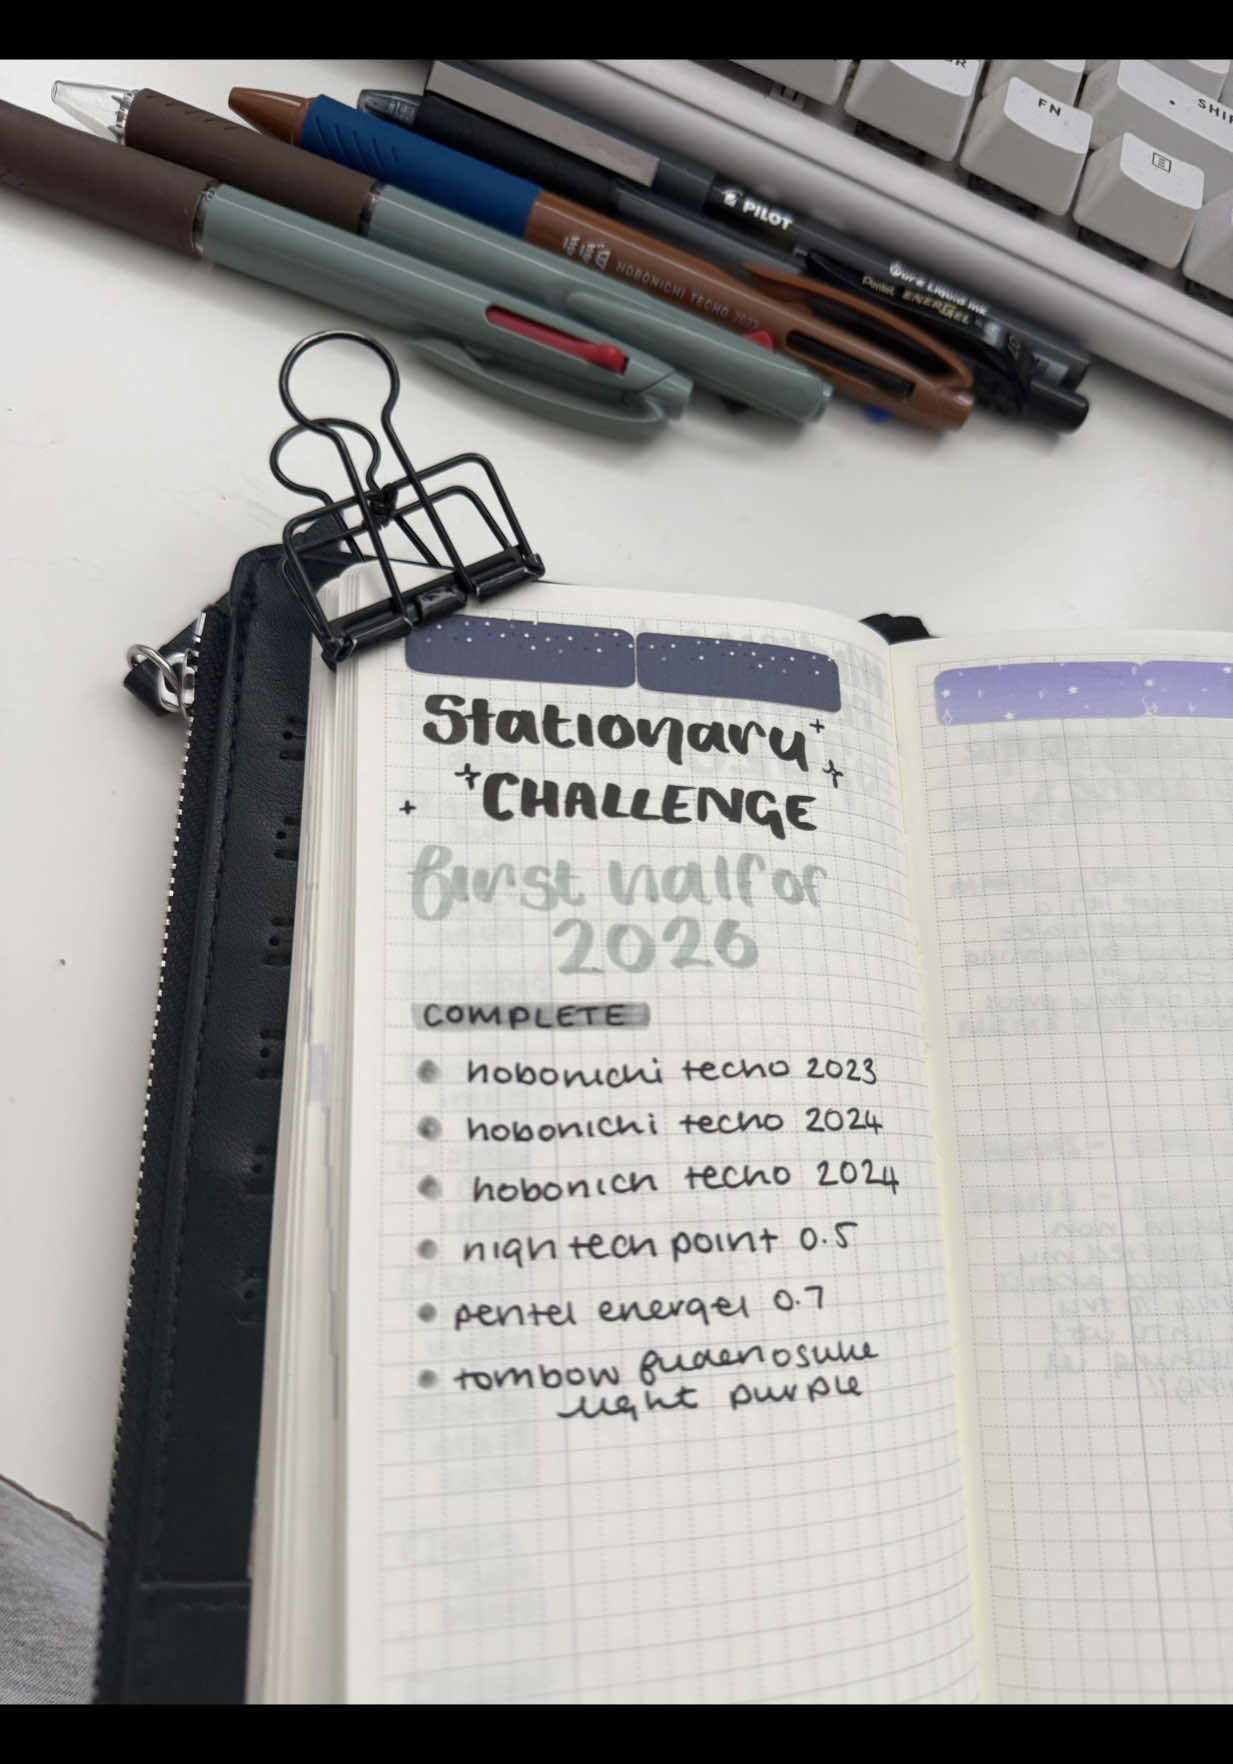 FN
SHIF
PILOT
Pure Liquid Ink
Pentel ENERGEL
HOBONICHI TECHO 2023
Stationary
CHALLENGE
first half of
2026
COMPLETE
hobonichi techo 2023
hobonichi techo 2024
hobonich techo 2024
high tech point 0.5
pentel energel 0.7
tombow fudenosuke
light purple